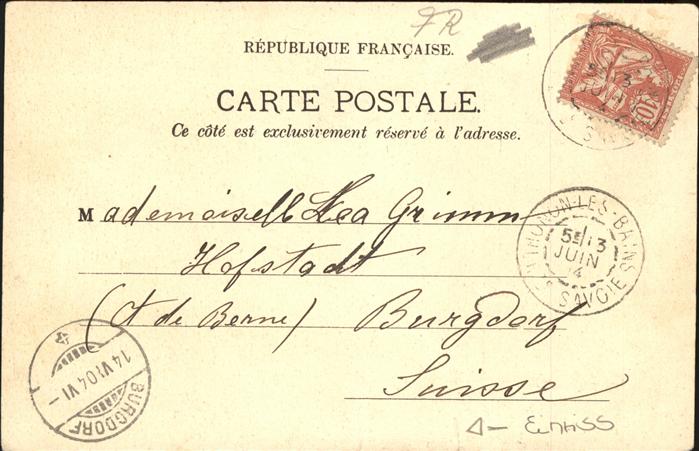 FR
RÉPUBLIQUE FRANÇAISE.
CARTE POSTALE.
Ce côté est exclusivement réservé à l'adresse.
Mademoiselle Léa Grimm
Hofstadt
(Ct de Berne) Burgdorf
Suisse
10
THONON-LES-BAINS
5E/13
JUIN
04
Hte SAVOIE
14.VI.04.VI-
BURGDORF
EINRISS